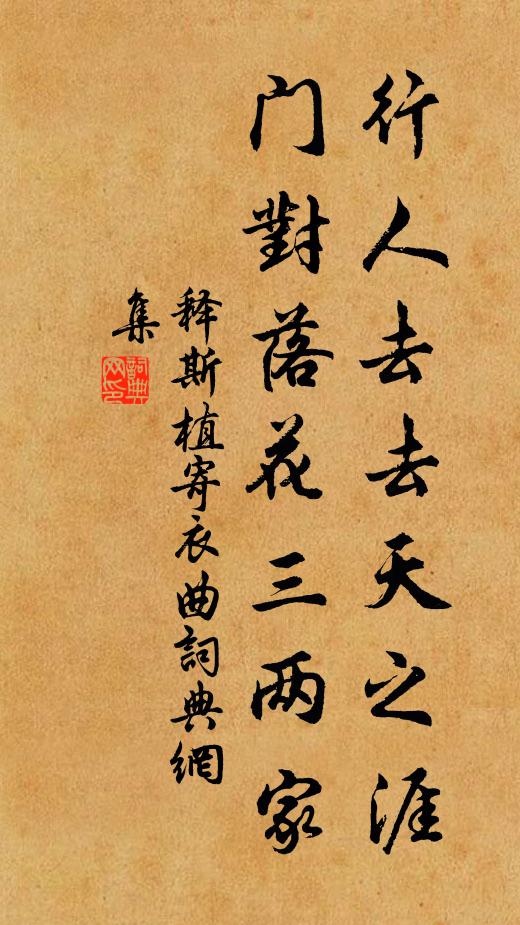 行人去去天之涯
门對落花三两家
释斯植寄衣曲詞典網
集
詞典网印